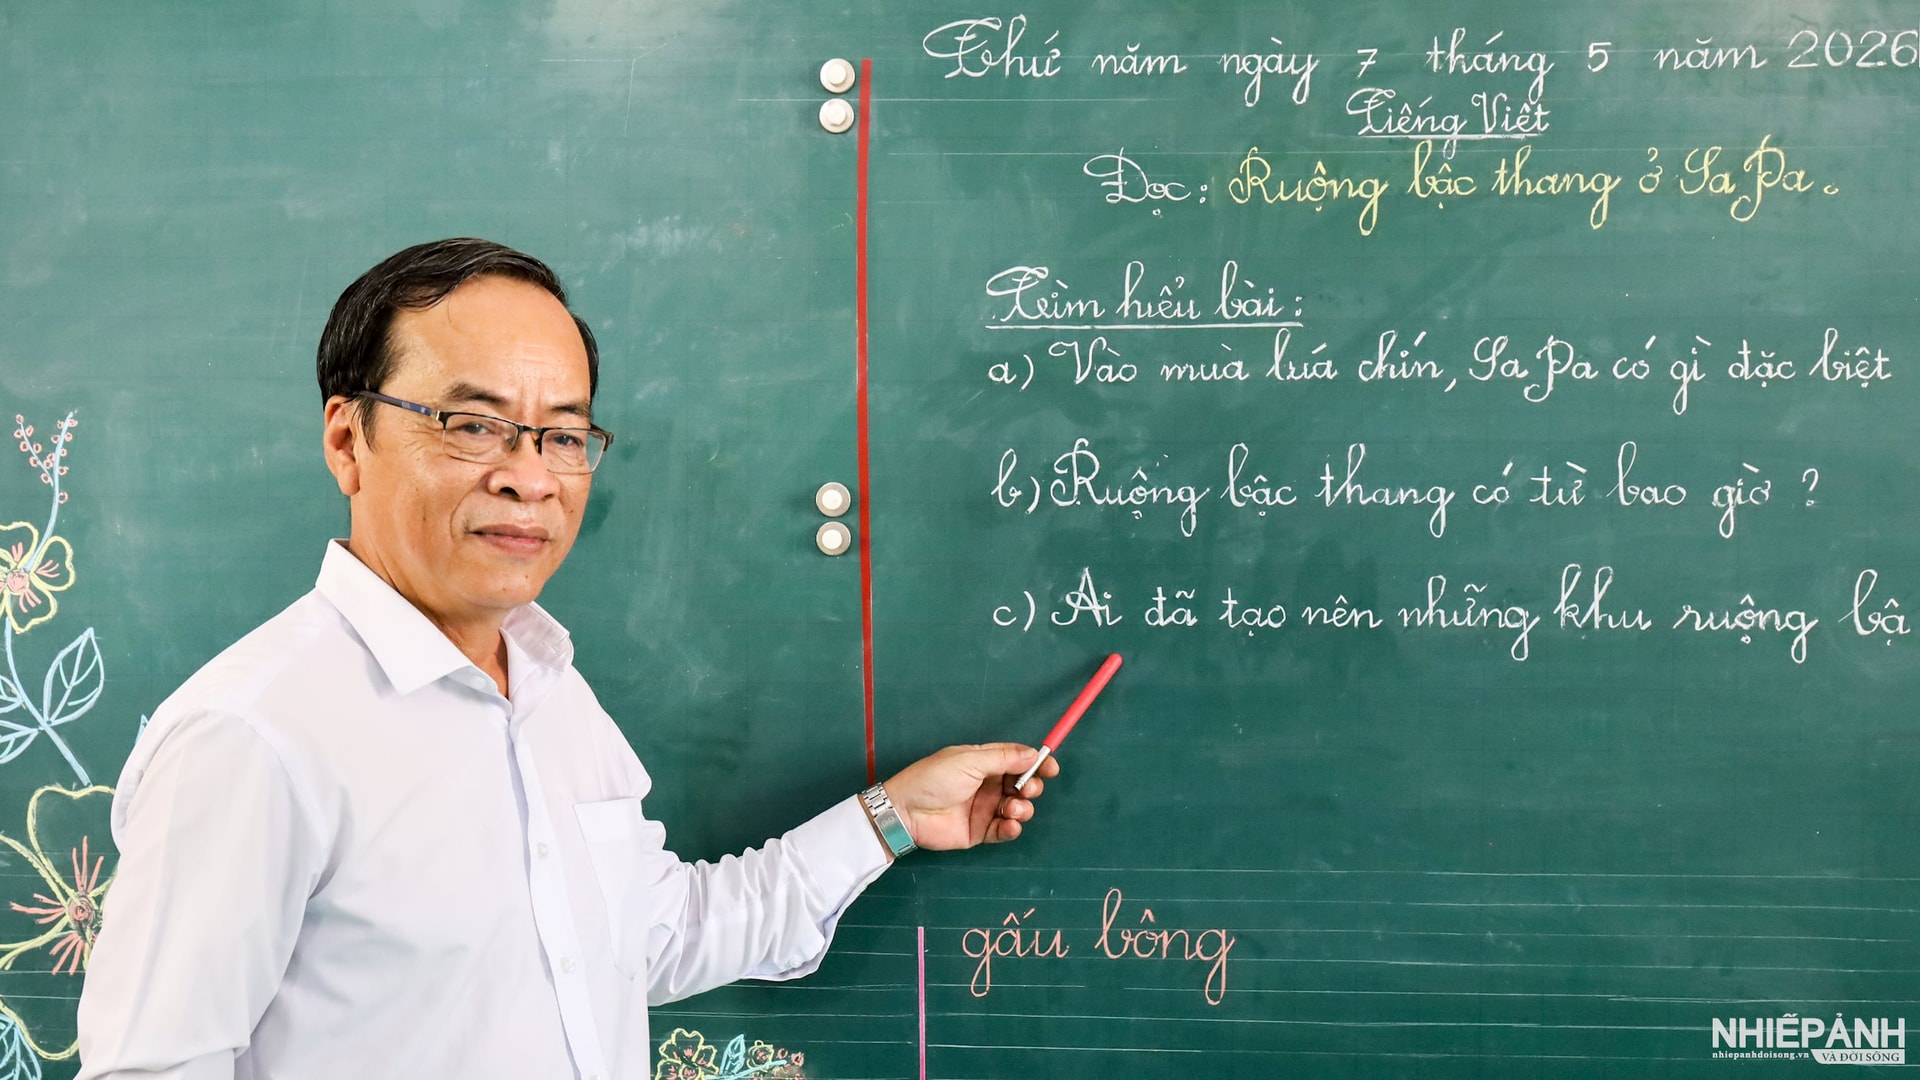 Thứ năm ngày 7 tháng 5 năm 2026
Tiếng Việt
Đọc: Ruộng bậc thang ở Sa Pa.
Tìm hiểu bài:
a) Vào mùa lúa chín, Sa Pa có gì đặc biệt
b) Ruộng bậc thang có từ bao giờ ?
c) Ai đã tạo nên những khu ruộng bậ
gấu bông
NHIẾPẢNH
nhiepanhdoisong.vn VÀ ĐỜI SỐNG